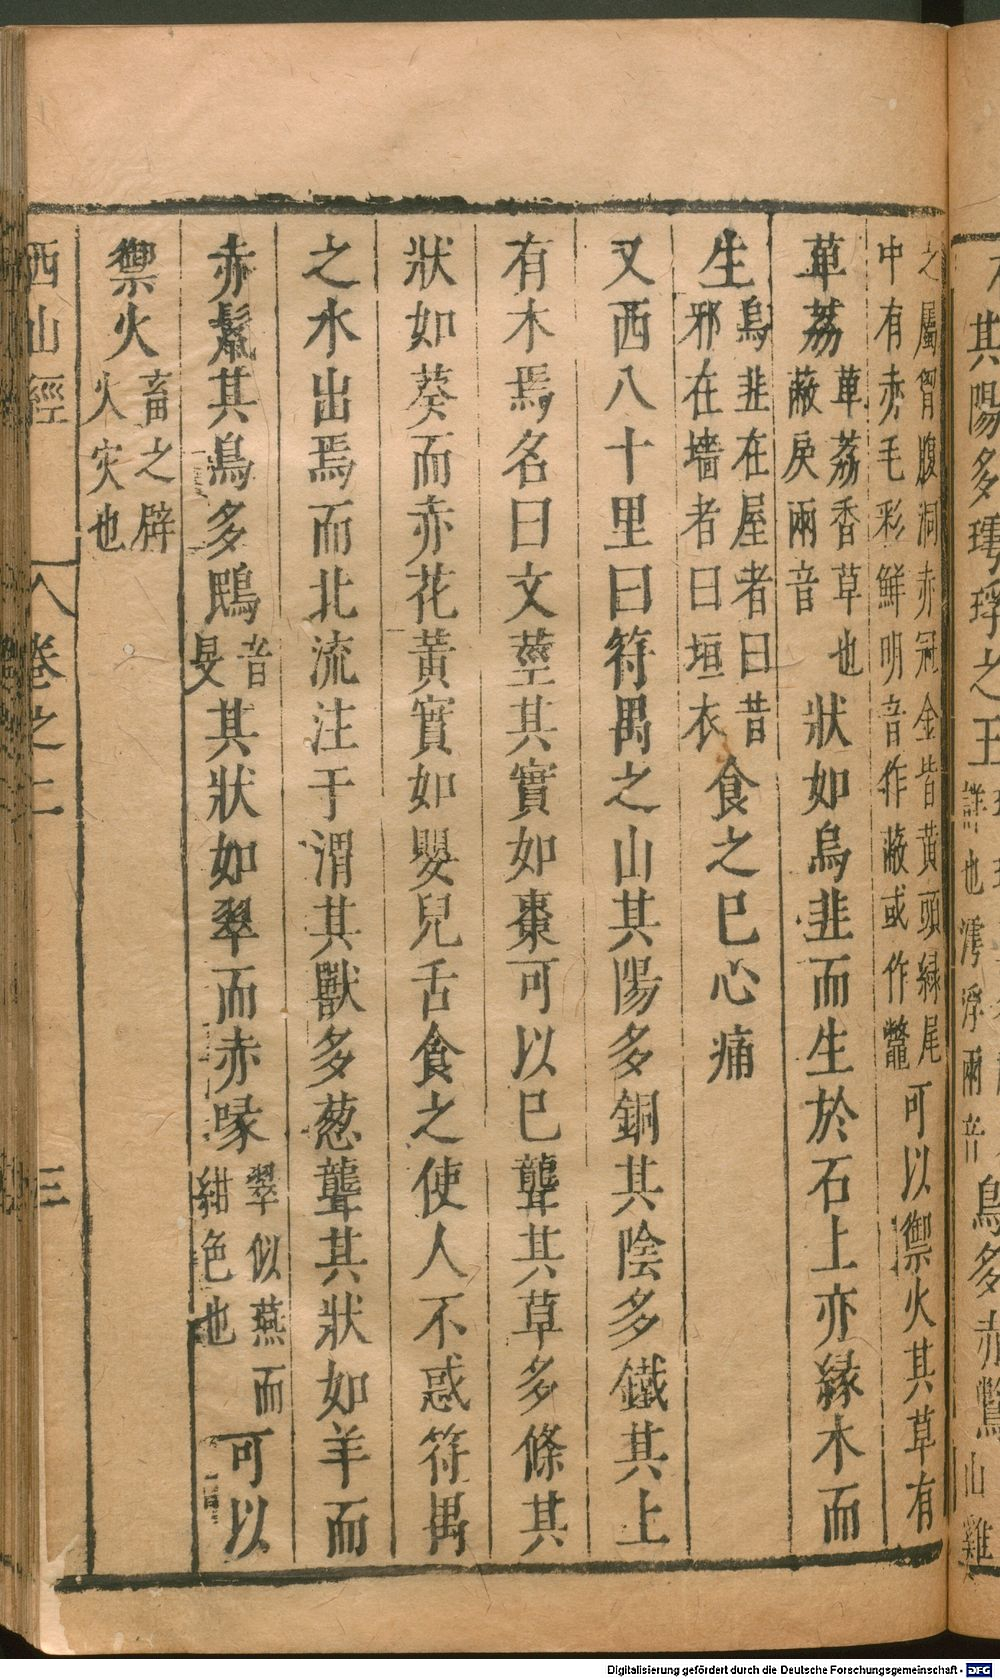 其陽多㻬琈之玉
詳也㻬浮兩音
鳥多赤鷩山雞
之屬胷腹洞赤冠金皆黃頭緑尾
中有赤毛彩鮮明音作蔽或作鼈
可以禦火其草有
萆荔
萆荔香草也
蔽戾兩音
狀如烏韭而生於石上亦緣木而
生
烏韭在屋者曰昔
邪在墙者曰垣衣
食之已心痛
又西八十里曰符禺之山其陽多銅其陰多鐵其上
有木焉名曰文莖其實如棗可以已聾其草多條其
狀如葵而赤花黃實如嬰兒舌食之使人不惑符禺
之水出焉而北流注于渭其獸多葱聾其狀如羊而
赤鬣其鳥多鴖
音
旻
其狀如翠而赤喙
翠似燕而
紺色也
可以
禦火
畜之辟
火灾也
西山經 卷之二 三
Digitalisierung gefördert durch die Deutsche Forschungsgemeinschaft - DFG